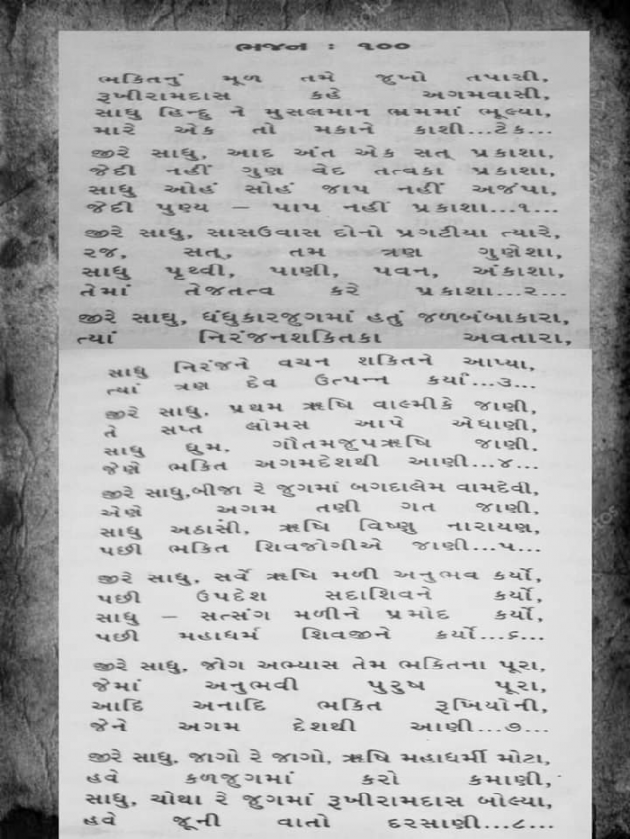 ભજન : ૧૦૦
ભકિતનું મૂળ તમે જુઓ તપાસી,
રૂખીરામદાસ કહે અગમવાસી,
સાધુ હિન્દુ ને મુસલમાન ભ્રમમાં ભૂલ્યા,
મારે એક તો મકાને કાશી...ટેક...
જીરે સાધુ, આદ અંત એક સત્ પ્રકાશા,
જેદી નહીં ગુણ વેદ તત્વકા પ્રકાશા,
સાધુ ઓહં સોહં જાપ નહીં અજંપા,
જેદી પુણ્ય – પાપ નહીં પ્રકાશા...૧...
જીરે સાધુ, સાસઉવાસ દોનો પ્રગટીયા ત્યારે,
રજ, સત્, તમ ત્રણ ગુણેશા,
સાધુ પૃથ્વી, પાણી, પવન, અંકાશા,
તેમાં તેજતત્વ કરે પ્રકાશા...૨...
જીરે સાધુ, ધંધુકારજુગમાં હતું જળબંબાકારા,
ત્યાં નિરંજનશકિતકા અવતારા,
સાધુ નિરંજને વચન શકિતને આપ્યા,
ત્યાં ત્રણ દેવ ઉત્પન્ન કર્યાં...૩...
જીરે સાધુ, પ્રથમ ઋષિ વાલ્મીકે જાણી,
તે સપ્ત લોમસ આપે એધાણી,
સાધુ ધુમ, ગૌતમજુપઋષિ જાણી.
જેણે ભકિત અગમદેશથી આણી...૪...
જીરે સાધુ,બીજા રે જુગમાં બગદાલેમ વામદેવી,
એણે અગમ તણી ગત જાણી,
સાધુ અઠાસી, ઋષિ વિષ્ણુ નારાયણ,
પછી ભકિત શિવજોગીએ જાણી...૫...
જીરે સાધુ, સર્વે ઋષિ મળી અનુભવ કર્યો,
પછી ઉપદેશ સદાશિવને કર્યો,
સાધુ – સત્સંગ મળીને પ્રમોદ કર્યો,
પછી મહાધર્મ શિવજીને કર્યો...૬...
જીરે સાધુ, જોગ અભ્યાસ તેમ ભકિતના પૂરા,
જેમાં અનુભવી પુરુષ પૂરા,
આદિ અનાદિ ભકિત રૂખિયોની,
જેને અગમ દેશથી આણી...૭...
જીરે સાધુ, જાગો રે જાગો, ઋષિ મહાધર્મી મોટા,
હવે કળજુગમાં કરો કમાણી,
સાધુ, ચોથા રે જુગમાં રૂખીરામદાસ બોલ્યા,
હવે જૂની વાતો દરસાણી...૮...